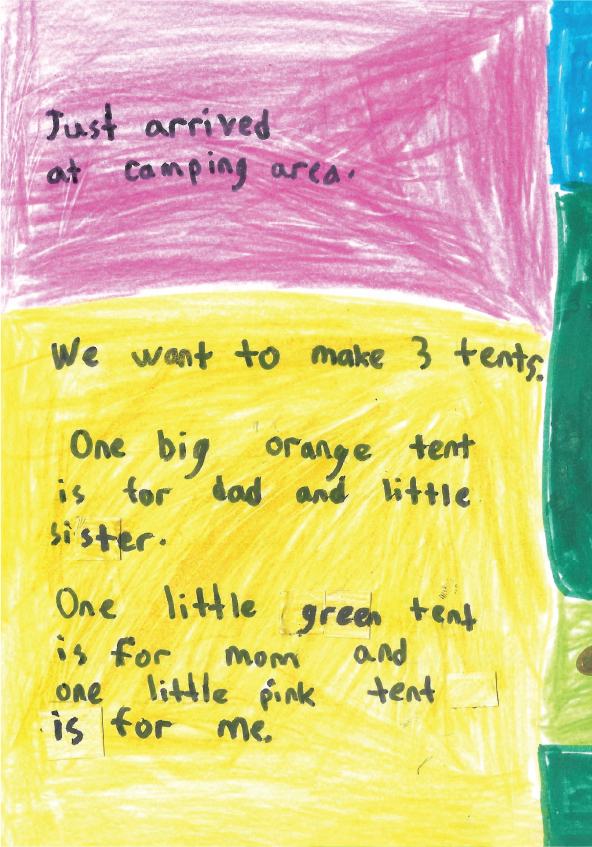 Just arrived
at camping area.
We want to make 3 tents.
One big orange tent
is for dad and little
sister.
One little green tent
is for mom and
one little pink tent
is for me.